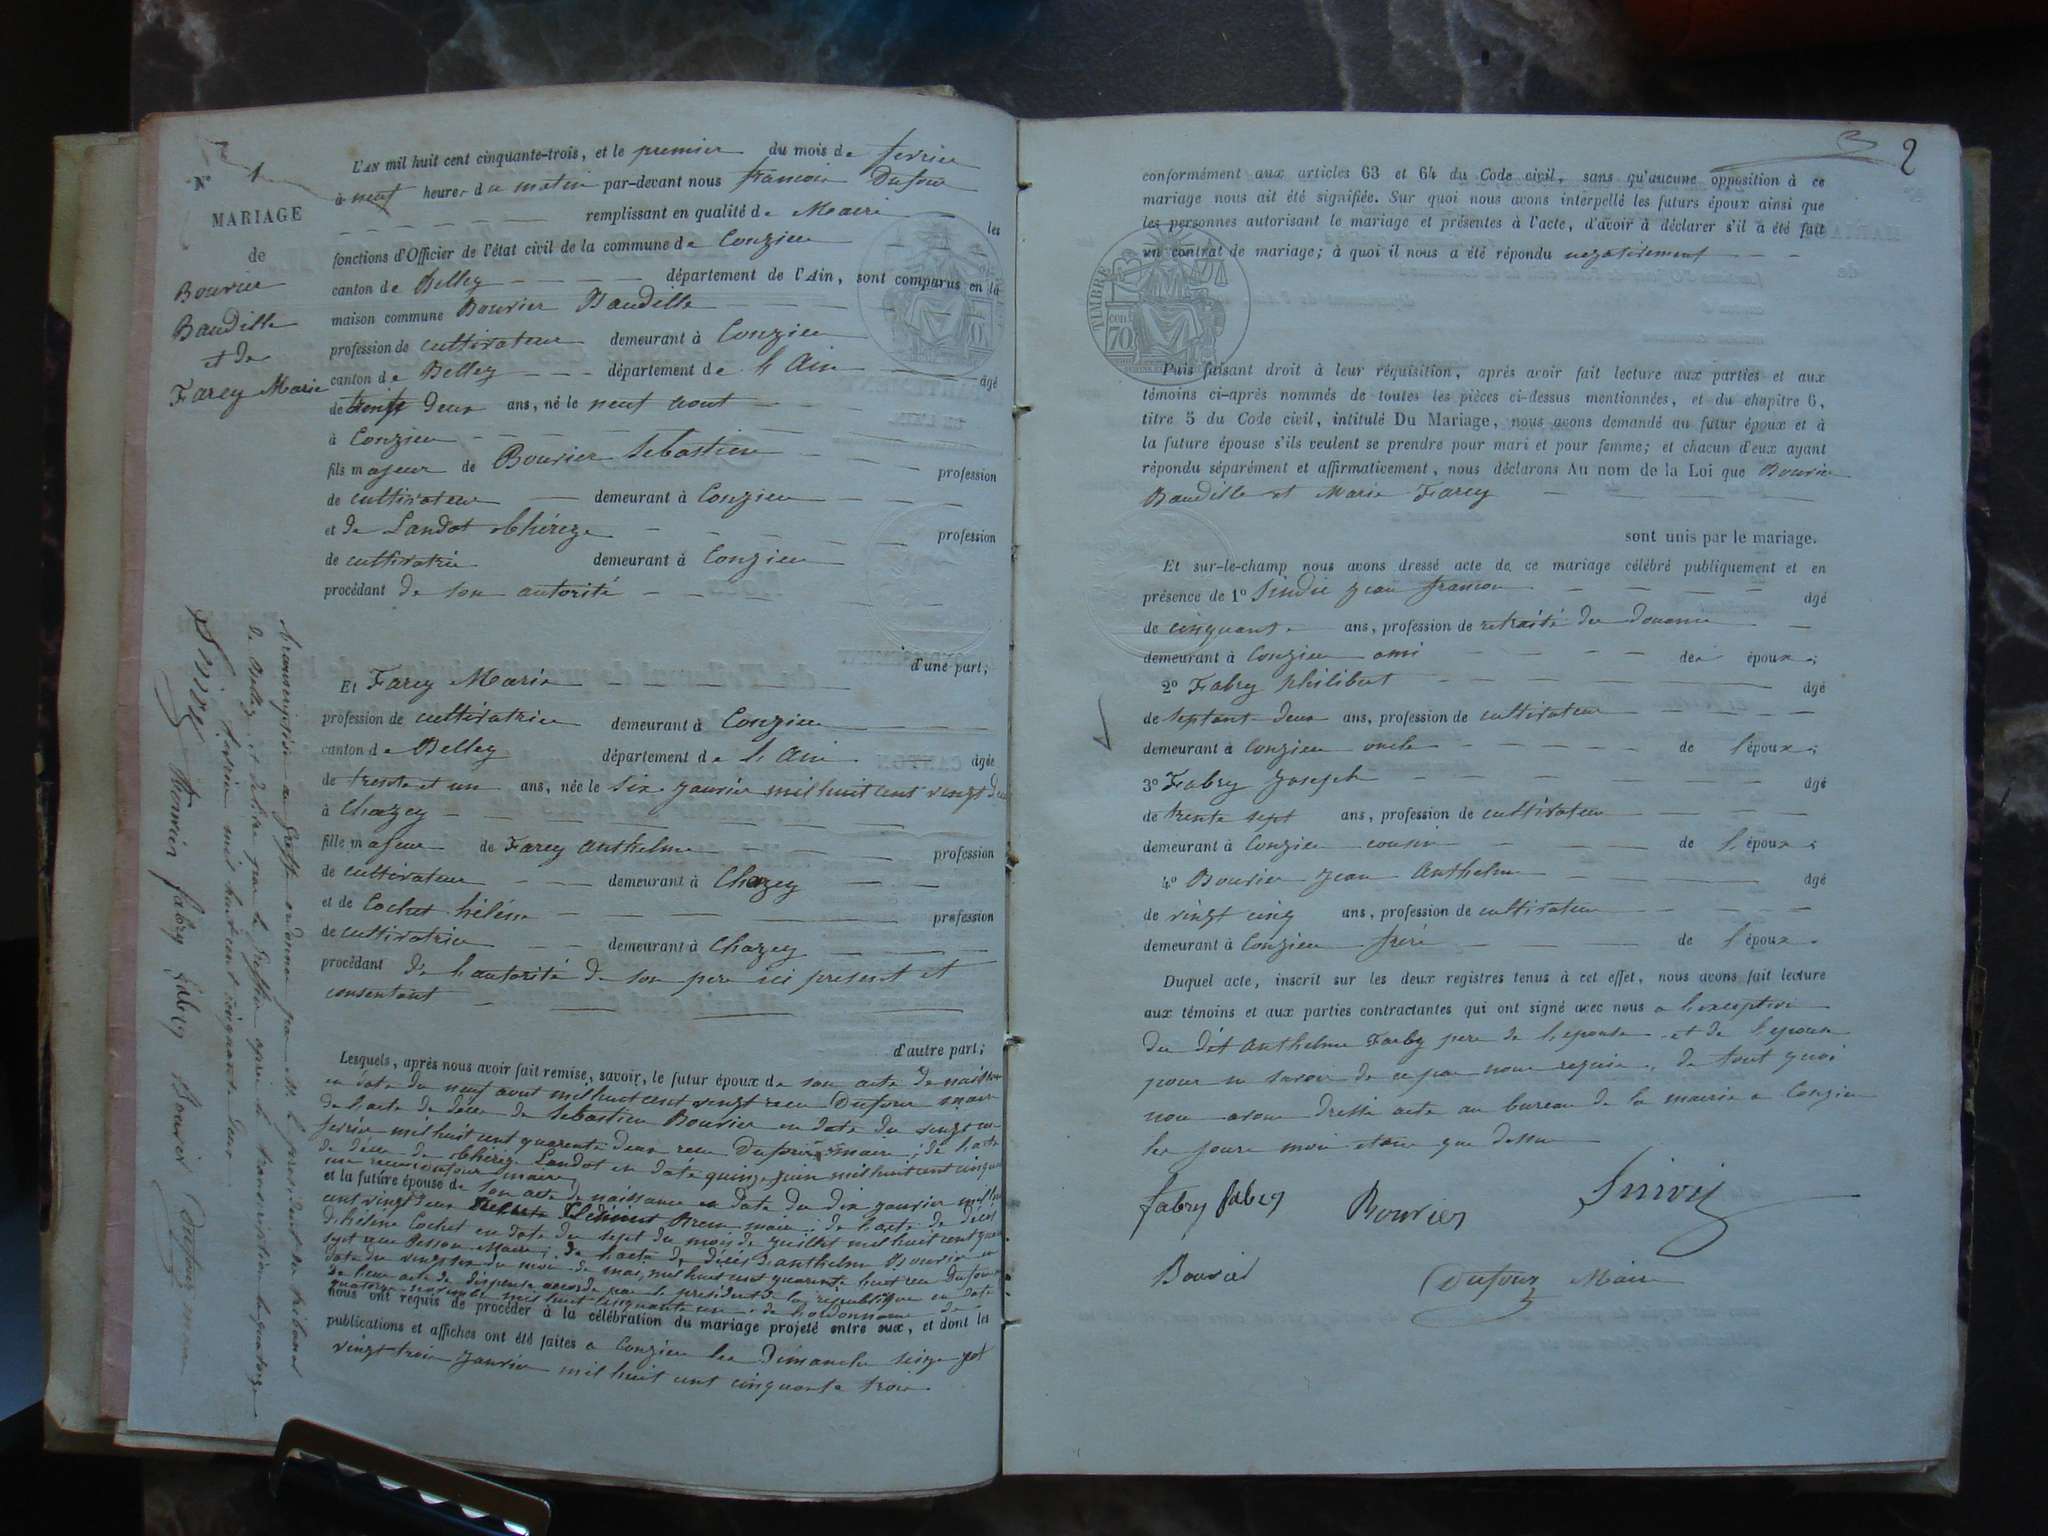 N° 1
MARIAGE
de
Bouvier
Baudille
et de
Farcy Marie
L'AN mil huit cent cinquante-trois, et le premier du mois de fevrier
à neuf heures du matin par-devant nous francois Dufour
remplissant en qualité de Maire les
fonctions d'Officier de l'état civil de la commune de Conzieu
canton de Belley département de l'Ain, sont comparus en la
maison commune Bouvier Baudille
profession de cultivateur demeurant à Conzieu
canton de Belley département de l'Ain âgé
de trente deux ans, né le neuf aout
à Conzieu
fils majeur de Bouvier Sebastien profession
de cultivateur demeurant à Conzieu
et de Landot thérèze profession
de cultivatrice demeurant à Conzieu
procédant de son autorité
d'une part;
Et Farcy Marie
profession de cultivatrice demeurant à Conzieu
canton de Belley département de l'Ain âgée
de trente et un ans, née le six janvier mil huit cent vingt deux
à Chazey
fille majeur de Farcy Anthelme profession
de cultivateur demeurant à Chazey
et de Cochet hélène profession
de cultivatrice demeurant à Chazey
procédant de l'autorité de son pere ici present et
consentant
d'autre part;
Lesquels, après nous avoir fait remise, savoir, le futur époux de son acte de naissance
en date du neuf aout mil huit cent vingt recu Dufour maire
de l'acte de décès de Sebastien Bouvier en date du vingt
fevrier mil huit cent quarante deux recu Dufour maire; de l'acte
de décès de thérèze Landot en date quinze juin mil huit cent cinquante
maire
et la future épouse de son acte de naissance en date du dix janvier mil huit
cent vingt deux maire; de l'acte de décès
d'hélène Cochet en date du sept du mois de juillet mil huit cent
sept recu maire; de l'acte de décès d'anthelme Bouvier en
date du vingt six du mois de mai, mil huit cent quarante huit recu Dufour
de leur acte de dispense accordé par le president de la république en date
quatorze novembre mil huit cinquante
nous ont requis de procéder à la célébration du mariage projeté entre eux, et dont les
publications et affiches ont été faites a Conzieu les Dimanche seize et
vingt trois janvier mil huit cent cinquante trois
transcription au greffe ordonnée par Mr le president du tribunal
de Belley et delivré par le greffier apres la transcription le quatorze
mil huit cent cinquante deux
Sindic Bouvier fabry fabry Bouvier Dufour maire
2
conformément aux articles 63 et 64 du Code civil, sans qu'aucune opposition à ce
mariage nous ait été signifiée. Sur quoi nous avons interpellé les futurs époux ainsi que
les personnes autorisant le mariage et présentes à l'acte, d'avoir à déclarer s'il a été fait
un contrat de mariage; à quoi il nous a été répondu negativement
TIMBRE
70 cent
Puis faisant droit à leur réquisition, après avoir fait lecture aux parties et aux
témoins ci-après nommés de toutes les pièces ci-dessus mentionnées, et du chapitre 6,
titre 5 du Code civil, intitulé Du Mariage, nous avons demandé au futur époux et à
la future épouse s'ils veulent se prendre pour mari et pour femme; et chacun d'eux ayant
répondu séparément et affirmativement, nous déclarons Au nom de la Loi que Bouvier
Baudille et Marie Farcy
sont unis par le mariage.
Et sur-le-champ nous avons dressé acte de ce mariage célébré publiquement et en
présence de 1° Sindic jean francois âgé
de cinquante ans, profession de retraité du douane
demeurant à Conzieu ami des époux;
2° Fabry philibert âgé
de septant deux ans, profession de cultivateur
demeurant à Conzieu oncle de l'époux;
3° Fabry joseph âgé
de trente sept ans, profession de cultivateur
demeurant à Conzieu cousin de l'époux;
4° Bouvier jean Anthelme âgé
de vingt cinq ans, profession de cultivateur
demeurant à Conzieu frère de l'époux.
Duquel acte, inscrit sur les deux registres tenus à cet effet, nous avons fait lecture
aux témoins et aux parties contractantes qui ont signé avec nous a l'exception
du dit Anthelme Farcy pere de l'epouse et de l'epouse
pour ne savoir de ce par nous requis, de tout quoi
nous avons dressé acte au bureau de la mairie a Conzieu
les jours mois et an que dessus
fabry fabry Bouvier Sindic
Bouvier Dufour Maire